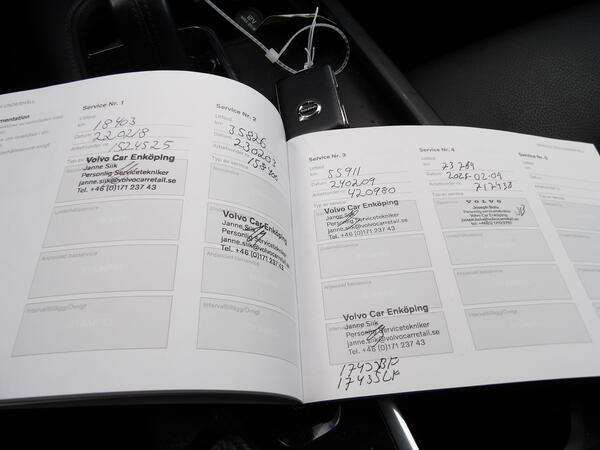 Service Nr. 1
Utförd
km 18403
Datum 220218
Arbetsorder nr 1524525
Typ av
Volvo Car Enköping
Janne Siik
Personlig Servicetekniker
janne.siik@volvocarretail.se
Tel. +46 (0)171 237 43
Anpassad basservice
Intervalltillägg/Övrigt
Service Nr. 2
Utförd
km 35826
Datum 230203
Arbetsorder nr
Typ av service
Volvo Car Enköping
Janne Siik
Personlig Servicetekniker
janne.siik@volvocarretail.se
Tel. +46 (0)171 237 43
Anpassad basservice
Intervalltillägg/Övrigt
Service Nr. 3
Utförd
km 55911
Datum 240209
Arbetsorder nr 420980
Volvo Car Enköping
Janne Siik
Personlig Servicetekniker
janne.siik@volvocarretail.se
Tel. +46 (0)171 237 43
Anpassad basservice
Volvo Car Enköping
Janne Siik
Personlig Servicetekniker
janne.siik@volvocarretail.se
Tel. +46 (0)171 237 43
Service Nr. 4
Utförd
km 73789
Datum 2025-02-04
Arbetsorder nr 717438
Typ av service
VOLVO
Personlig servicetekniker
Volvo Car Enköping
Anpassad basservice
Intervalltillägg/Övrigt
Service Nr. 5
Utförd
km
Datum
12V